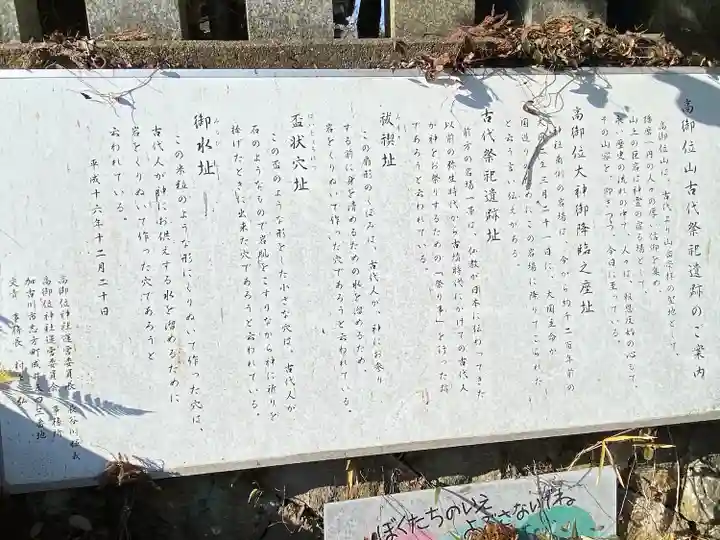 高御位山古代祭祀遺跡のご案内
高御位山は、古代より山岳宗拝の聖地として、
播磨一円の人々の厚い信仰を集め、
山上の巨岩は神霊の宿る場として、
長い歴史の流れの中で、人々は、報恩反始の心をもって、
その山容を、仰ぎつつ、今日に至っている。
高御位大神御降臨之座址
神社南側の岩場は、今から約千二百年前の
三月二十一日に、大国主命が
国造り ためにこの岩場に降りてこられた
と云う言い伝えがある
古代祭祀遺跡址
前方の岩場一帯は、仏教が日本に伝わってきた
以前の弥生時代から古墳時代にかけての古代人
が神をお祭りするための「祭り事」を行った跡
であろうと云われている。
祓禊址
この扇形のくぼみは、古代人が、神にお祭り
する前に身を清めるための水を溜めるため
岩をくりぬいて作った穴であろうと云われている。
盃状穴址
この盃のような形をした小さな穴は、古代人が
石のようなもので岩肌をこすりながら神に祈りを
捧げたときに出来た穴であろうと云われている。
御水址
この米粒のような形にくりぬいて作った穴は、
古代人が神にお供えする水を溜めるために
岩をくりぬいて作った穴であろうと
云われている。
平成十六年十二月二十日
高御位神社運営委員長 長谷川
高御位神社運営委員会 事務所
加古川市志方町成井
文責 事務長
ぼくたちのいえ
よごさないでね